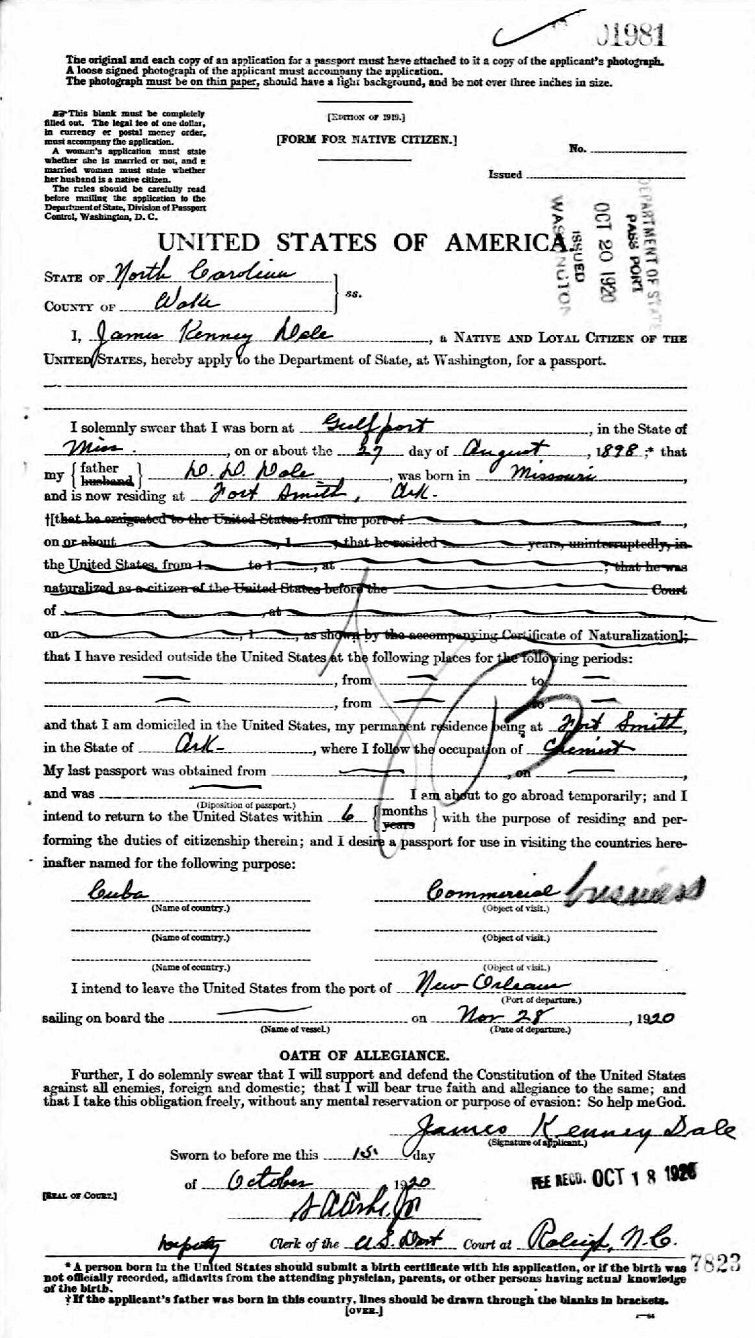 01981
The original and each copy of an application for a passport must have attached to it a copy of the applicant's photograph.
A loose signed photograph of the applicant must accompany the application.
The photograph must be on thin paper, should have a light background, and be not over three inches in size.
This blank must be completely
filled out. The legal fee of one dollar,
in currency or postal money order,
must accompany the application.
A woman's application must state
whether she is married or not, and a
married woman must state whether
her husband is a native citizen.
The rules should be carefully read
before mailing the application to the
Department of State, Division of Passport
Control, Washington, D. C.
[EDITION OF 1919.]
[FORM FOR NATIVE CITIZEN.]
No.
Issued
DEPARTMENT OF STATE
PASSPORT
OCT 20 1920
ISSUED
WASHINGTON
UNITED STATES OF AMERICA.
STATE OF North Carolina
COUNTY OF Wake
ss.
I, James Kenney Dale, a NATIVE AND LOYAL CITIZEN OF THE
UNITED STATES, hereby apply to the Department of State, at Washington, for a passport.
I solemnly swear that I was born at Gulfport, in the State of
Miss., on or about the 27 day of August, 1898;* that
my {father husband} D. D. Dale, was born in Missouri,
and is now residing at Fort Smith, Ark.
†[that he emigrated to the United States from the port of
on or about , 1 , that he resided years, uninterruptedly, in
the United States, from 1 to 1 , at ; that he was
naturalized as a citizen of the United States before the Court
of , at
on , 1 , as shown by the accompanying Certificate of Naturalization];
that I have resided outside the United States at the following places for the following periods:
, from to
, from to
and that I am domiciled in the United States, my permanent residence being at Fort Smith,
in the State of Ark, where I follow the occupation of Chemist
My last passport was obtained from , on ,
and was I am about to go abroad temporarily; and I
(Diposition of passport.)
intend to return to the United States within 6 {months years} with the purpose of residing and per-
forming the duties of citizenship therein; and I desire a passport for use in visiting the countries here-
inafter named for the following purpose:
Cuba Commercial business
(Name of country.) (Object of visit.)
(Name of country.) (Object of visit.)
(Name of country.) (Object of visit.)
I intend to leave the United States from the port of New Orleans
(Port of departure.)
sailing on board the on Nov 28, 1920
(Name of vessel.) (Date of departure.)
OATH OF ALLEGIANCE.
Further, I do solemnly swear that I will support and defend the Constitution of the United States
against all enemies, foreign and domestic; that I will bear true faith and allegiance to the same; and
that I take this obligation freely, without any mental reservation or purpose of evasion: So help me God.
James Kenney Dale
(Signature of applicant.)
Sworn to before me this 15 day
of October 1920
FEE RECD. OCT 18 1920
[SEAL OF COURT.]
Deputy Clerk of the U.S. Dist Court at Raleigh, N.C.
7823
* A person born in the United States should submit a birth certificate with his application, or if the birth was
not officially recorded, affidavits from the attending physician, parents, or other persons having actual knowledge
of the birth.
† If the applicant's father was born in this country, lines should be drawn through the blanks in brackets.
[OVER.]